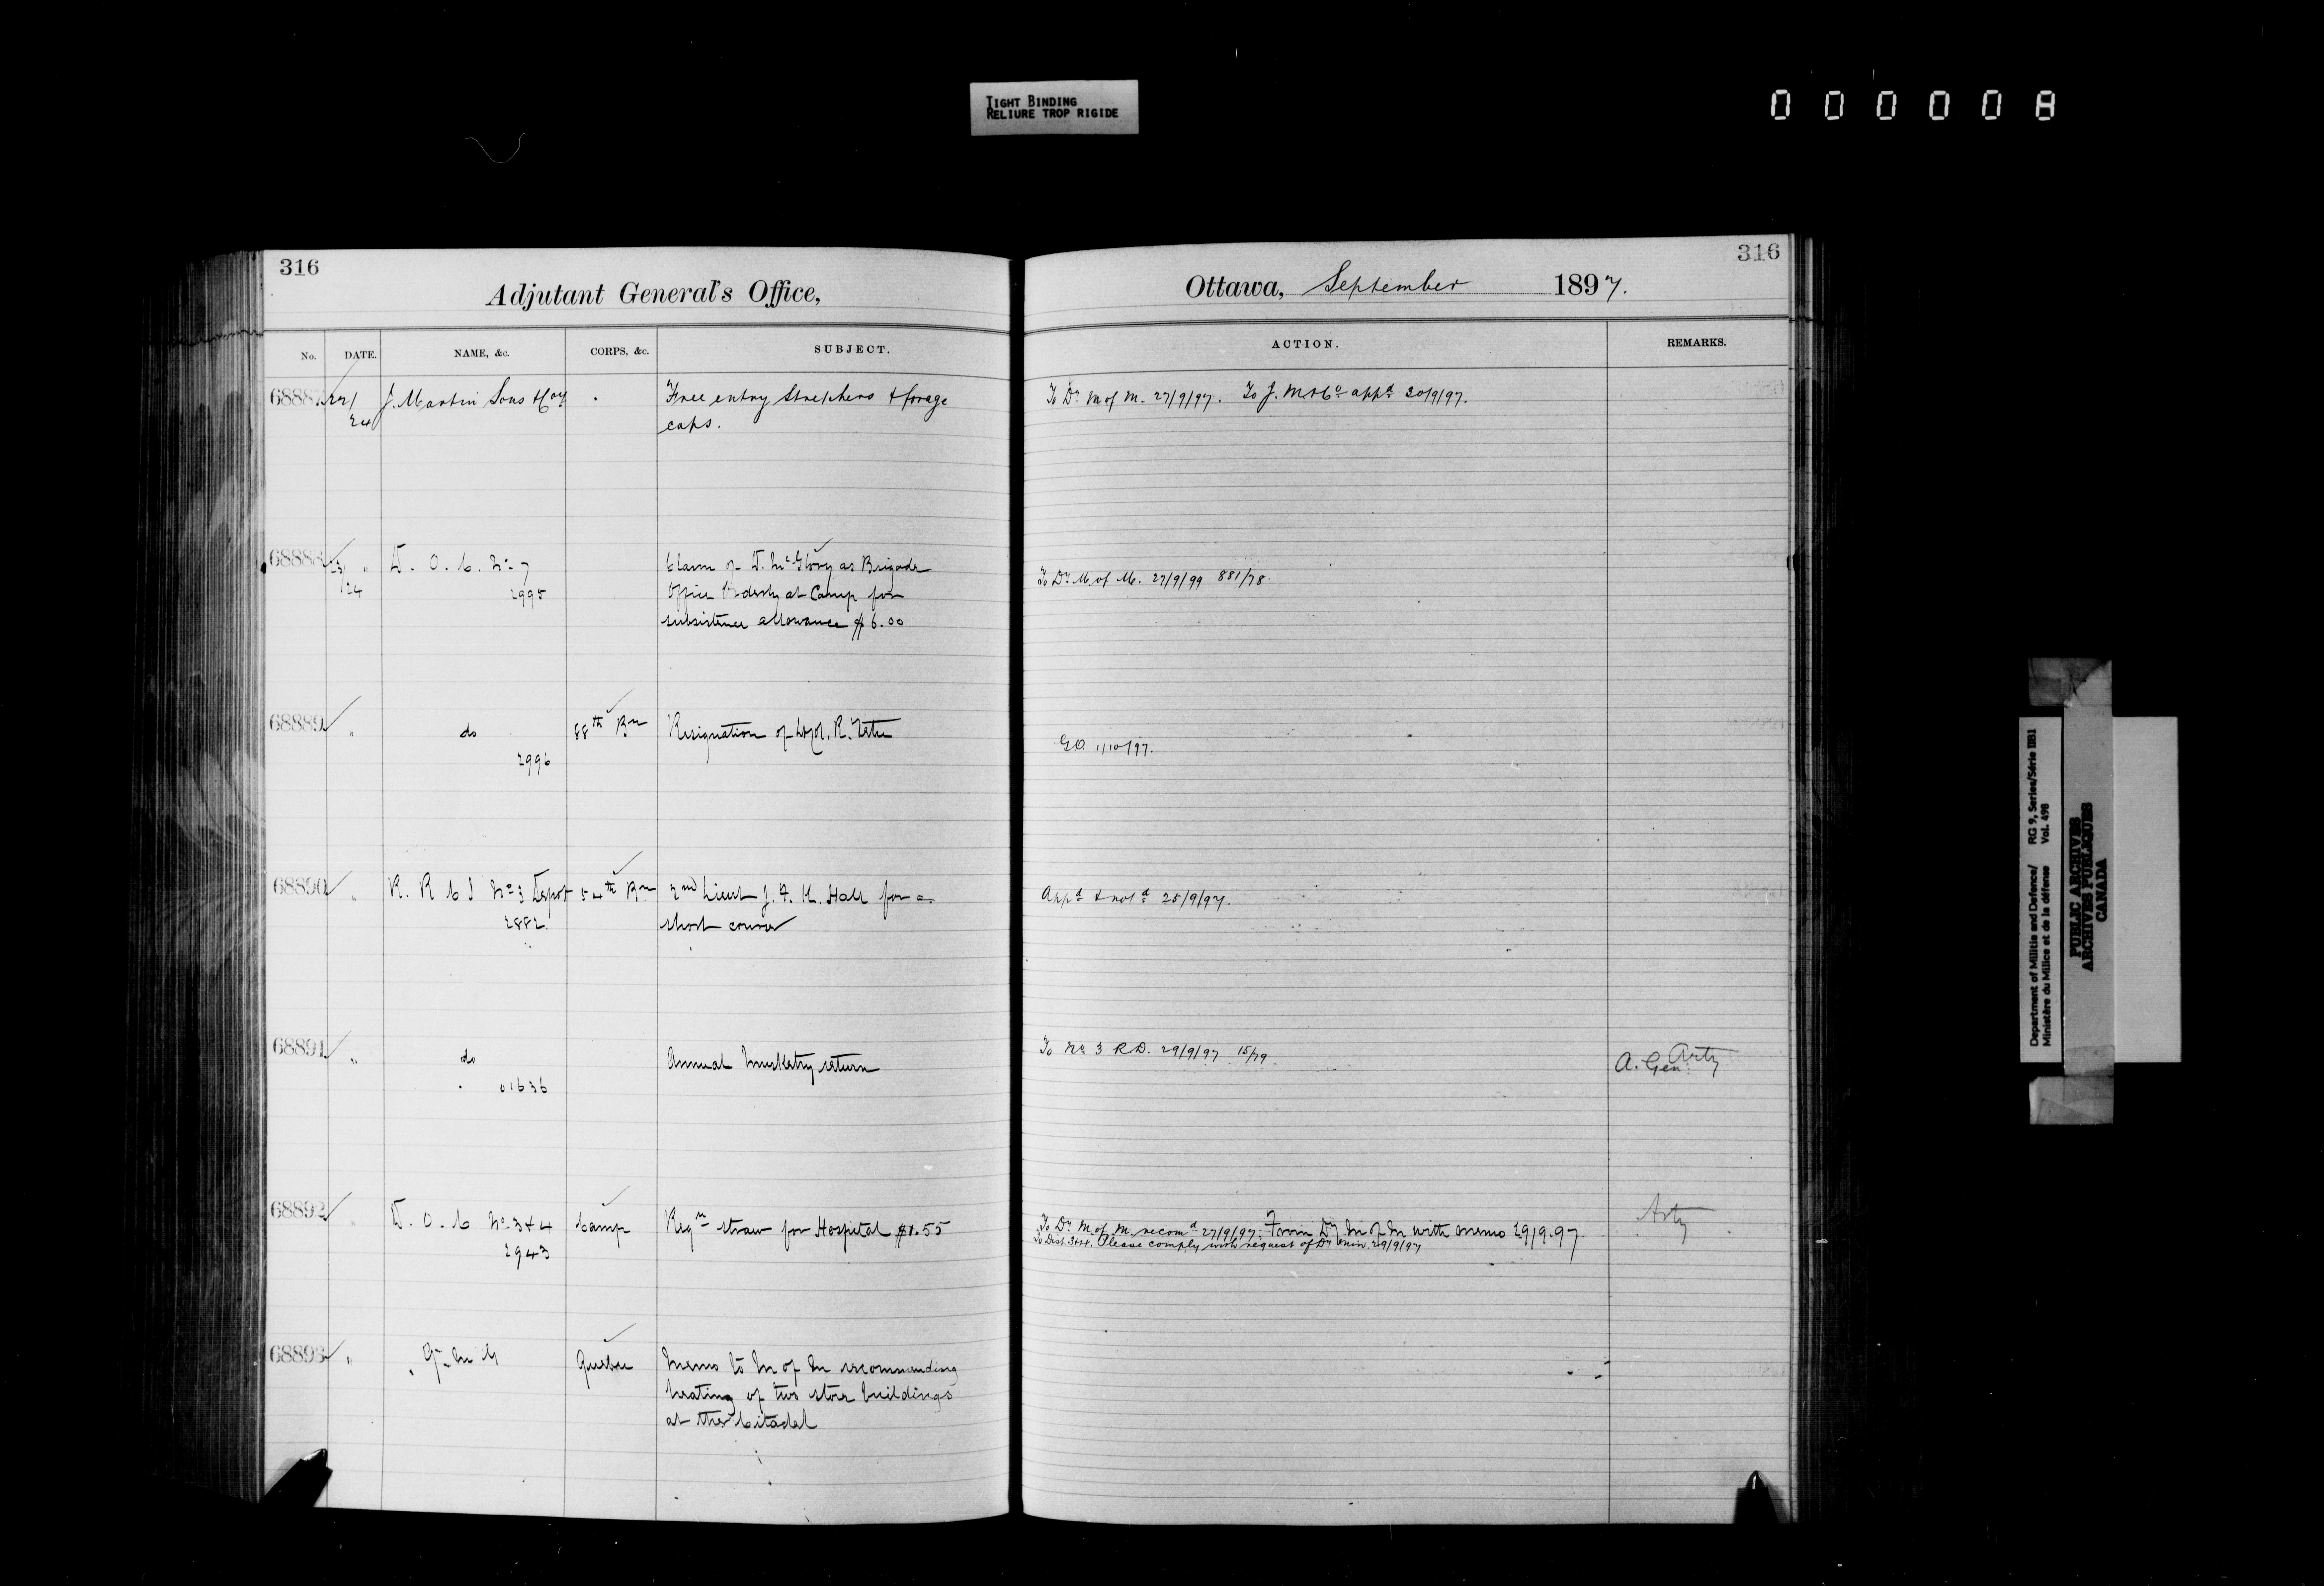 TIGHT BINDING
RELIURE TROP RIGIDE
000008
316
Adjutant General's Office,
316
Ottawa, September 1897.
No. DATE. NAME, &c. CORPS, &c. SUBJECT.
ACTION. REMARKS.
68887 22/24 J. Martin Sons & Coy Free entry Stretchers & forage
caps.
To Dy M of M. 27/9/97. To J. M & Co appd 30/9/97.
68888 23/24 " D. O. C. No 7
2995
Claim of D. McGlory as Brigade
Office Orderly at Camp for
subsistence allowance $6.00
To Dy M. of M. 27/9/99 881/78.
68889 " do 88th Bn Resignation of R.
2996
GO 1/10/97.
68890 " R. R C I No 3 Depot 54th Bn 2nd Lieut J. A. K. Hall for a
2882 short course
Appd & notd 25/9/97.
68891 " do Annual musketry return
01636
To No 3 R.D. 29/9/97 15/79
A. Gen Arty
68892 " D. O. C No 3 & 4 Camp Reqn straw for Hospital $1.55
2943
To Dy M of M. recomd 27/9/97. From Dy M of M with memo 29/9.97
To Dist 3 & 4. Please comply with request of Dy Min. 29/9/97
Arty
68893 " Q. M G Quebec Memo to M of M recommending
heating of two store buildings
at the Citadel
Department of Militia and Defence/ RG 9, Series/Série IIB1
Ministère du Milice et de la défense Vol. 498
PUBLIC ARCHIVES
ARCHIVES PUBLIQUES
CANADA